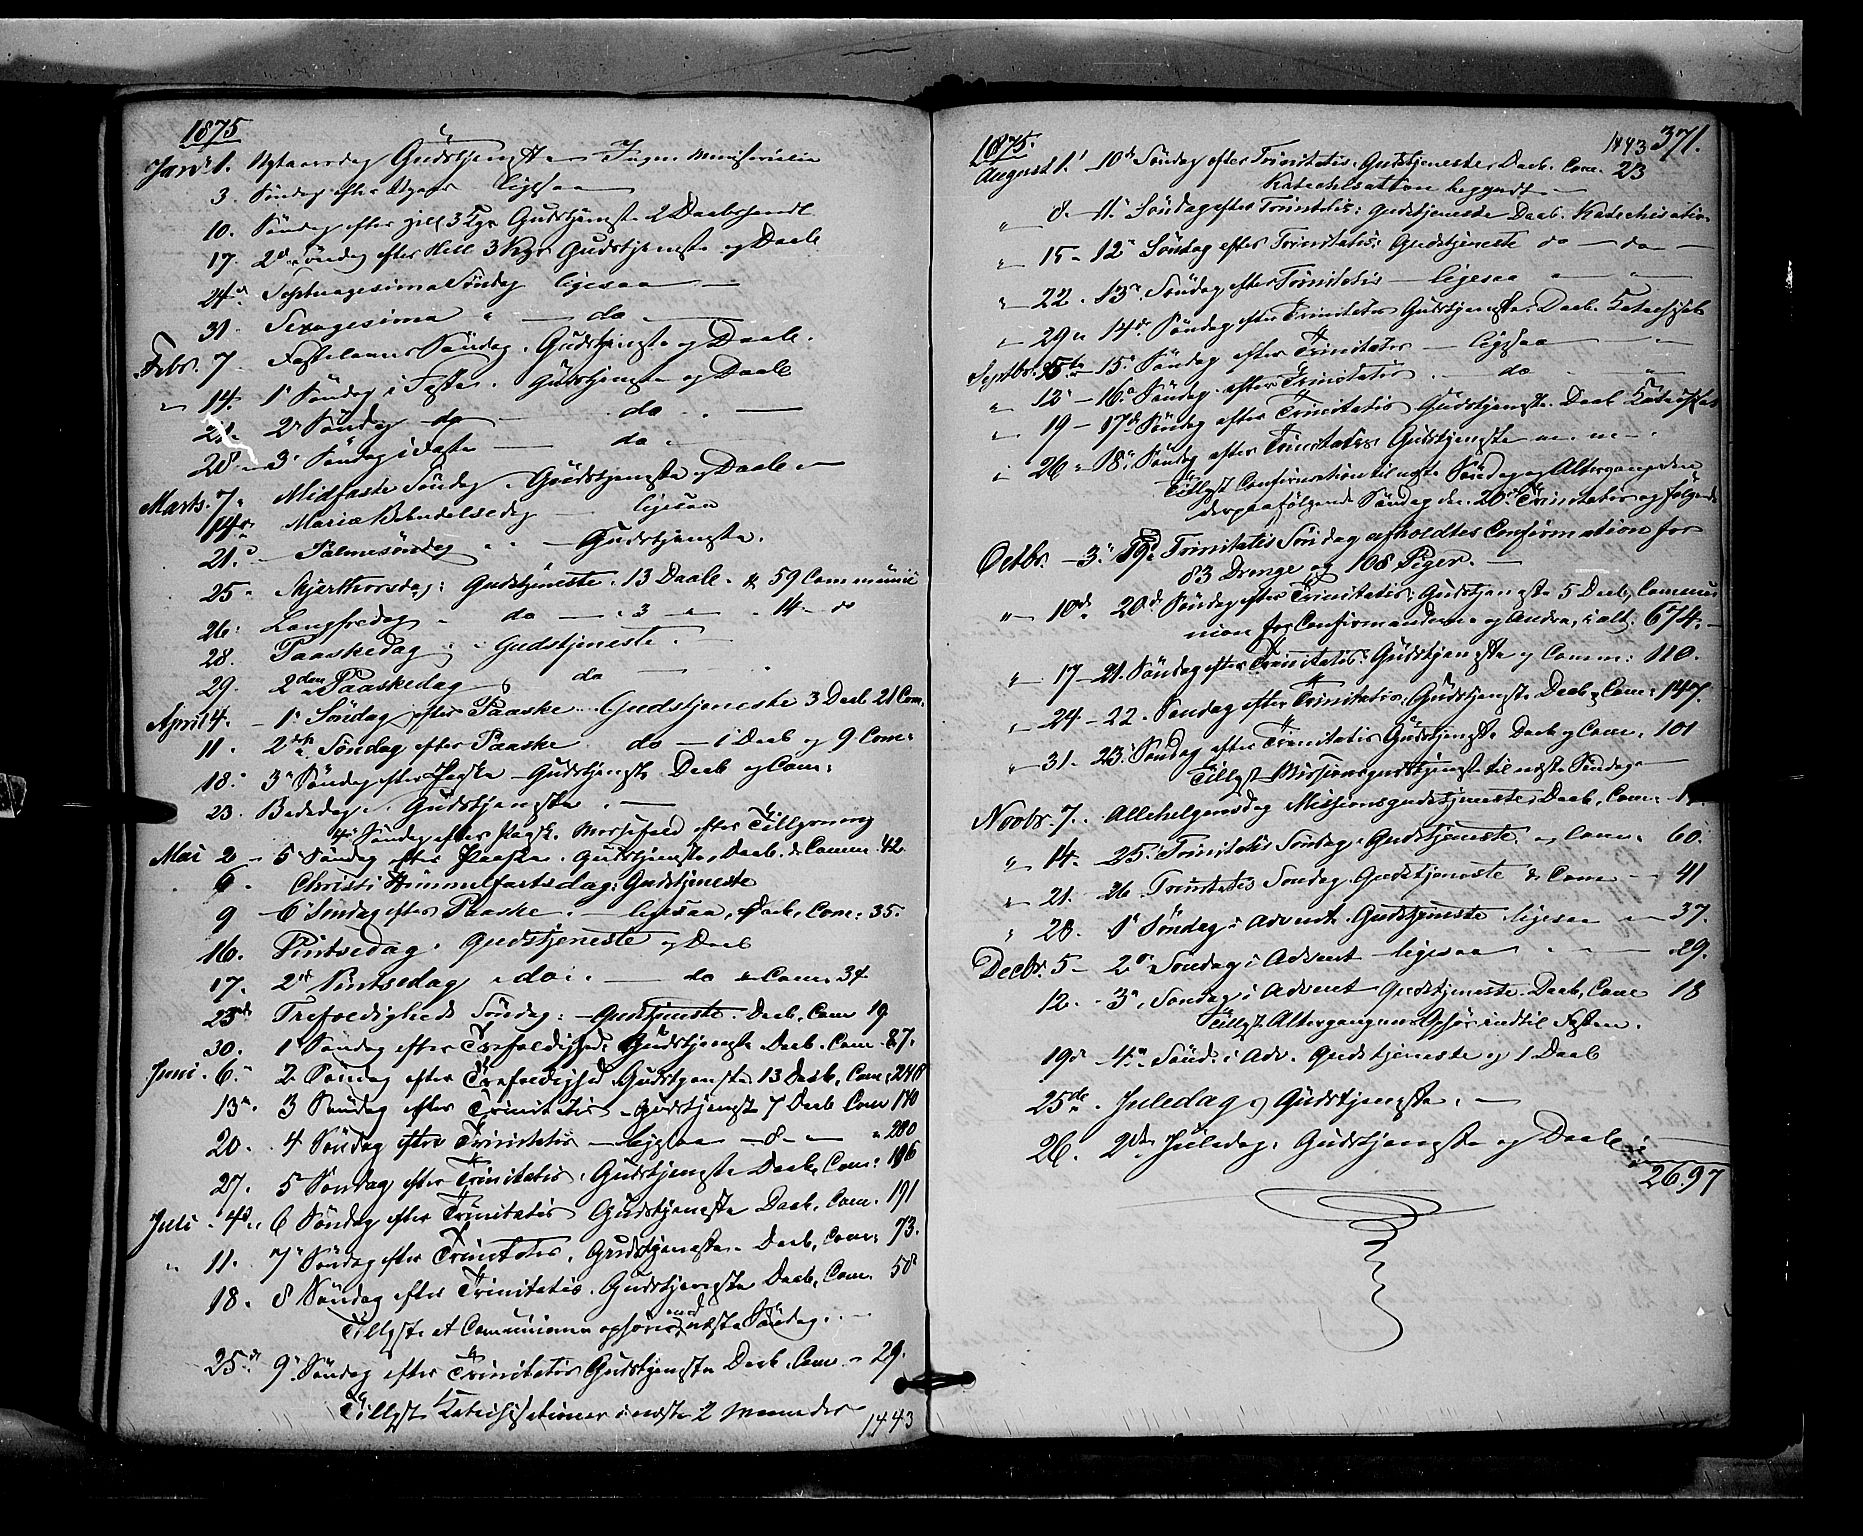 1875
Janr 1. Nytaarsdag Gudstjeneste Ingen Ministerialia
3. Søndag efter Nytaar ligesaa
10. Søndag efter hell 3 Kgr Gudstjeneste 2 Daabshandl
17. 2d Søndag efter Hell 3 Kgr Gudstjeneste og Daab
24de Septuagesima Søndag ligesaa
31. Sexagesima " do
Febr. 7. Fastelavns Søndag. Gudstjeneste og Daab.
" 14. 1' Søndag i Faste. Gudstjeneste og Daab
21. 2' Søndag do do
28 3' Søndag i Faste do
Marts. 7. Midfaste Søndag. Gudstjeneste og Daab
14de Mariæ Bebudelsedag ligesaa
21. Palmesøndag Gudstjeneste.
25. Skjærthorsdag: Gudstjeneste. 13 Daab. & 59 Communic
26. Langfredag do 3 " 14 do
28. Paaskedag Gudstjeneste.
29. 2den Paaskedag do
April 4. 1' Søndag efter Paaske Gudstjeneste 3 Daab 21 Com.
11. 2den Søndag efter Paaske do 1 Daab og 9 Com:
18. 3' Søndag efter Paaske Gudstjeneste Daab og Com:
23. Bededag. Gudstjeneste.
4' Søndag efter Paaske. Messefald efter Tillysning
Mai 2 5' Søndag efter Paaske. Gudstjeneste, Daab. & Comm. 42
6. Christi Himmelfartsdag: Gudstjeneste
9 6' Søndag efter Paaske. ligesaa, Daab, Com: 35.
16. Pintsedag. Gudstjeneste og Daab
17. 2den Pintsedag do do & Com. 34
23de Trefoldigheds Søndag: Gudstjeneste. Daab, Com 19
30. 1' Søndag efter Trefoldighed: Gudstjeneste Daab. Com 87.
Juni. 6. 2 Søndag efter Trefoldighed Gudstjeneste 13 Daab, Com: 248
13de 3 Søndag efter Trinitatis Gudstjeneste 7 Daab Com 170
20. 4 Søndag efter Trinitatis ligesaa 8 " 280
27. 5 Søndag efter Trinitatis. Gudstjeneste Daab, Com: 186
Juli 4de 6 Søndag efter Trinitatis Gudstjeneste Daab, Com. 191
" 11. 7' Søndag efter Trinitatis. Gudstjeneste. Daab, Com: 73.
18. 8 Søndag efter Trinitatis. Gudstjeneste Daab, Com. 50
Tillyste at Communionen ophører med næste Søndag.
25de 9' Søndag efter Trinitatis Gudstjeneste Daab, Com. 29.
Tillyst Katechisationer i næste 2 Maaneder
1443
1875. 1443 371.
August 1' 10de Søndag efter Trinitatis. Gudstjeneste, Daab. Com. 23
Katechisation begyndt
" 8. 11' Søndag efter Trinitatis: Gudstjeneste Daab. Katechisation
" 15 12' Søndag efter Trinitatis: Gudstjeneste do do
" 22. 13' Søndag efter Trinitatis ligesaa
" 29 14de Søndag efter Trinitatis Gudstjeneste. Daab. Katechisat
Septbr. 5te 15' Søndag efter Trinitatis ligesaa
" 12 16' Søndag efter Trinitatis do
" 19 17de Søndag efter Trinitatis Gudstjeneste. Daab Katechisat
" 26 18' Søndag efter Trinitatis Gudstjeneste
Tillyst Confirmation til næste Søndag og Altergang den
derpaafølgende Søndag den 20' Trinitatis og følgende
Octbr. 3' 19' Trinitatis Søndag afholdtes Confirmation for
83 Drenge og 108 Piger.
" 10de 20de Søndag efter Trinitatis: Gudstjeneste 5 Daab, Commu
nion for Confirmanderne og Andre, i alt: 674.
" 17 21. Søndag efter Trinitatis: Gudstjeneste og Comm: 110.
" 24 22. Søndag efter Trinitatis, Gudstjeneste Daab, Com: 147.
" 31. 23' Søndag efter Trinitatis Gudstjeneste Daab og Com. 101
Tillyst Missionsgudstjeneste til næste Søndag
Novbr. 7. Allehelgensdag Missionsgudstjeneste, Daab, Com:
" 14. 25' Trinitatis Søndag. Gudstjeneste. og Com. 60.
" 21. 26 Trinitatis Søndag. Gudstjeneste & Com 41
" 28. 1' Søndag i Advent. Gudstjeneste ligesaa 37.
Decbr. 5 2' Søndag i Advent ligesaa 29.
12. 3' Søndag i Advent Gudstjeneste. Daab, Com 18
Tillyst Altergangens Ophør indtil Festen.
19de 4' Sønd. i Adv. Gudstjeneste og 1 Daab
25de Juledag, Gudstjeneste.
26. 2den Juledag, Gudstjeneste og Daab
2697